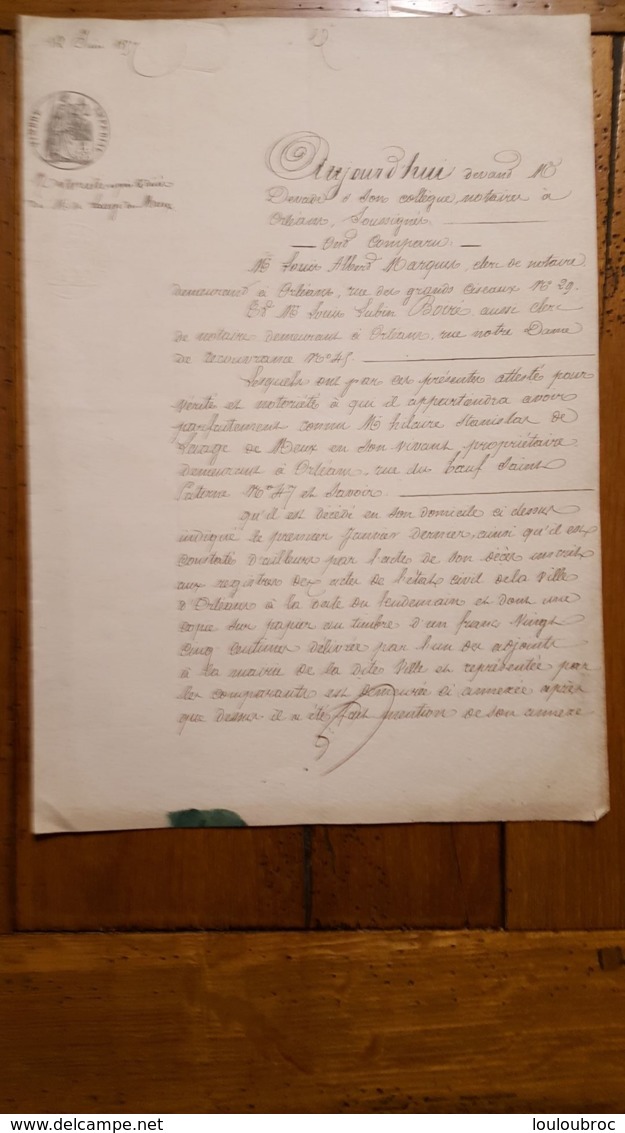 TIMBRE IMPERIAL
Aujourd'hui devant Me
Devade & Son collègue, notaires à
Orléans, Soussignés.
Ont Comparu.
Mr Louis Albert Marquis, clerc de notaire
demeurant à Orléans, rue des grands Ciseaux No 29.
Et Mr Louis Lubin Boiré aussi clerc
de notaire demeurant à Orléans, rue notre Dame
de recouvrance No 45.
Lesquels ont par ces présentes attesté pour
vérité et notoriété à qui il appartiendra avoir
parfaitement connu Mr hilaire Stanislas de
Sarage de Meux en Son vivant propriétaire
demeurant à Orléans, rue du bœuf Saint
Paterne No 47 et Savoir.
qu'il est décédé en son domicile ci dessus
indiqué le premier Janvier dernier, ainsi qu'il est
constaté d'ailleurs par l'acte de son décès inscrit
aux registres des actes de l'état civil de la Ville
d'Orléans à la date du lendemain et dont une
copie sur papier au timbre d'un franc Vingt
Cinq Centimes délivrée par l'un des adjoints
à la mairie de la dite Ville et représentée par
les comparants est demeurée ci annexée après
que dessus il a été fait mention de son annexe
© louloubroc | www.delcampe.net
louloubroc